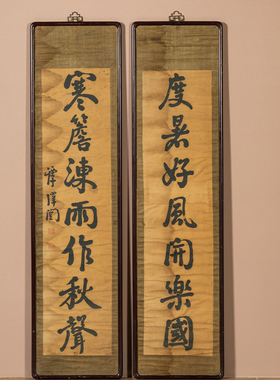 度暑好風開樂國
寒簷涷雨作秋聲
譚澤闓